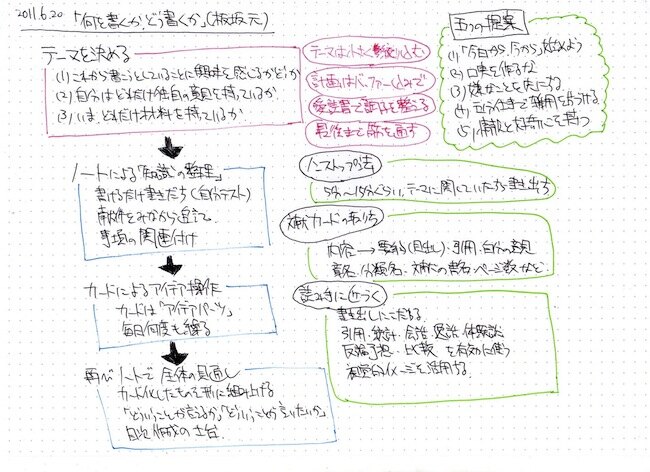 2011.6.20 「何を書くか、どう書くか」(板坂元)
テーマを決める
(1) これから書こうとしていることに興味を感じるかどうか
(2) 自分はどれだけ独自の意見を持っているか
(3) いま、どれだけ材料を持っているか
テーマは小さく絞り込む
計画はバッファー込みで
愛読書で調子を整える
最後まで筋を通す
五つの提案
(1)「今日から、今から」始めよう
(2) 口実を作るな
(3) 嫌なことを先にする
(4) 五分仕事で雑用を片づける
(5) 情報と好奇心を養う
ノートによる「知識」の整理
書けるだけ書きだす(自分テスト)
献件をみながら
事項の関連付け
ノンストップ法
5分〜15分ぐらい、テーマに関していたすら書き出す
文献カードの
内容→要約(見出し)・引用・自分の意見
書名、分類名、文献の書名、ページ数など
カードによるアイデア操作
カードは「アイデアパーツ」
毎日何度も繰る
読み手に近づく
書き出しにこだわる
引用・統計・会話・逸話・体験談
反論予想・比較 を有効に使う
視覚的イメージを活用する
再びノートで全体の見通し
カード化したものを形に組み上げる
「どういうことが言えるか」「どういうことが言いたいか」
目次作成の土台